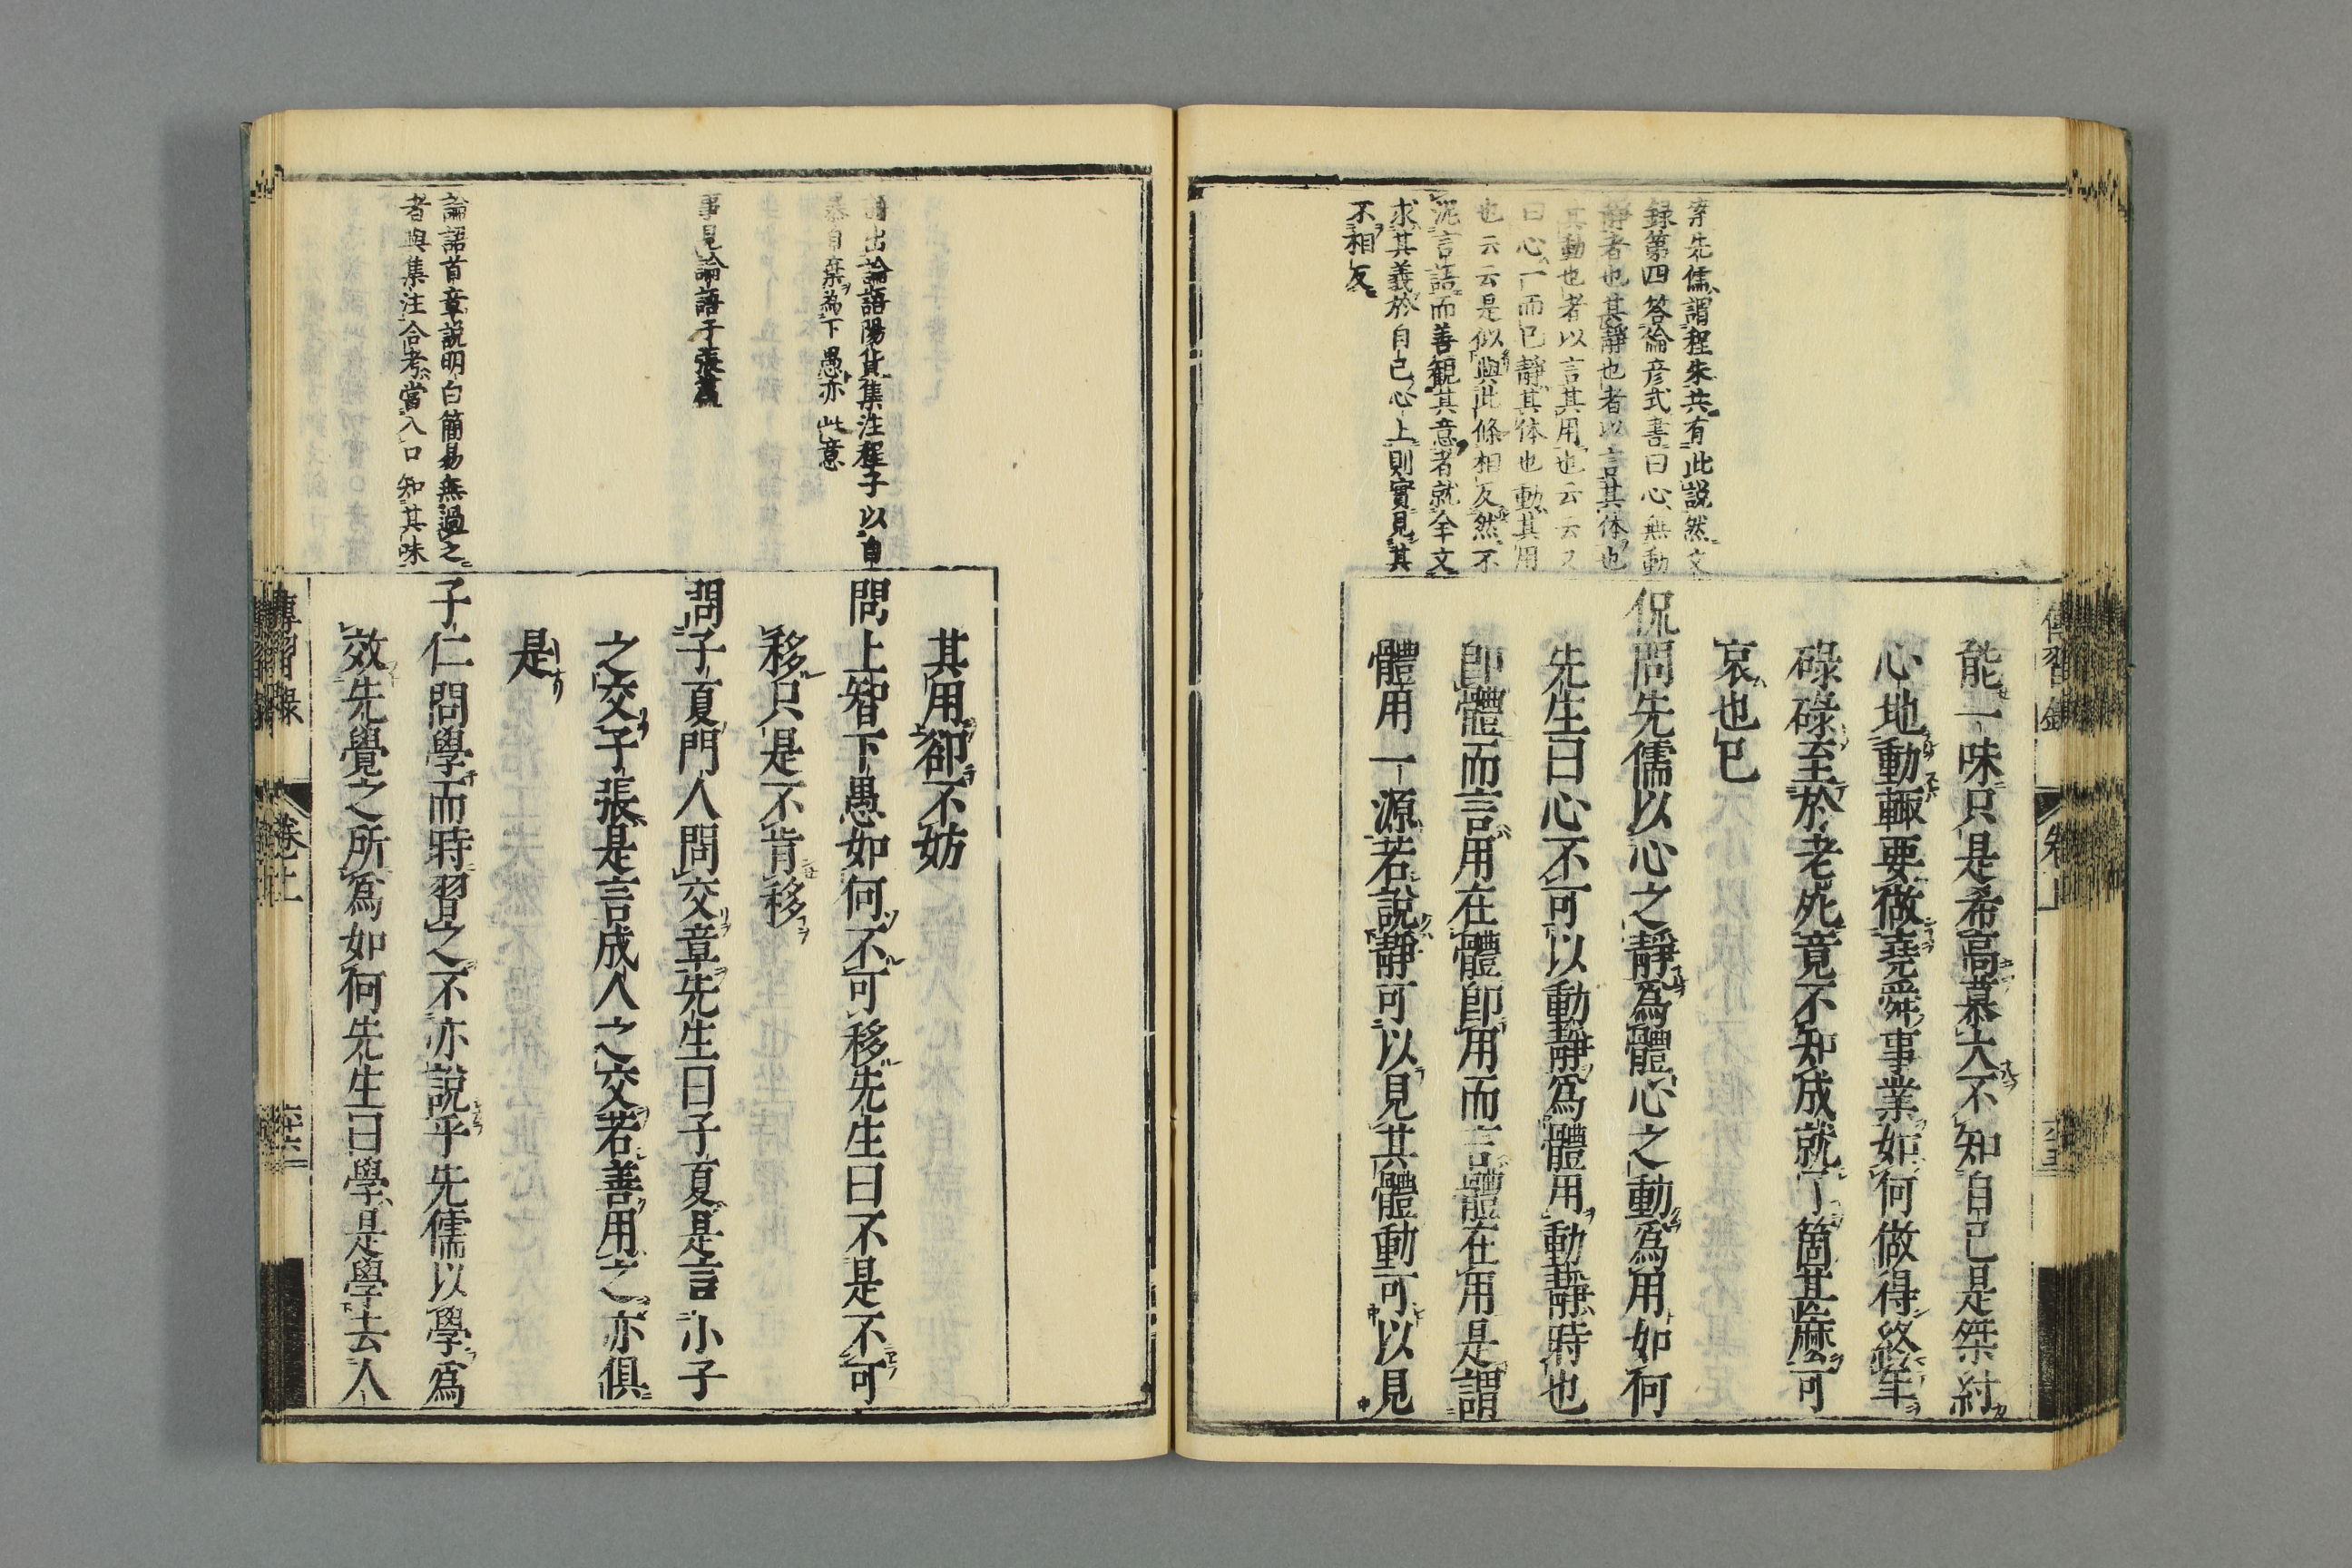 案先儒謂程朱共有此説然文
録第四答倫彦式書曰心無動
静者也其静也者以言其体也
其動也者以言其用也云云又
曰心一而已静其体也動其用
也云云是似與此條相反然不
泥言語而善観其意者就全文
求其義於自己心上則實見其
不相反
能一味只是希高慕大不知自己是桀紂
心地動輙要做堯舜事業如何做得終年
碌碌至於老死竟不知成就了箇甚麽可
哀也已
侃問先儒以心之靜爲體心之動爲用如何
先生曰心不可以動靜爲體用動靜時也
卽體而言用在體卽用而言體在用是謂
體用一源若説靜可以見其體動可以見
語出論語陽貨集注程子以自
暴自棄為下愚亦此意
事見論語子張篇
論語首章説明白簡易無過之
者與集注合考當入口知其味
其用卻不妨
問上智下愚如何不可移先生曰不是不可
移只是不肯移
問子夏門人問交章先生曰子夏是言小子
之交子張是言成人之交若善用之亦俱
是
子仁問學而時習之不亦説乎先儒以學爲
效先覺之所爲如何先生曰學是學去人
傳習録
卷上